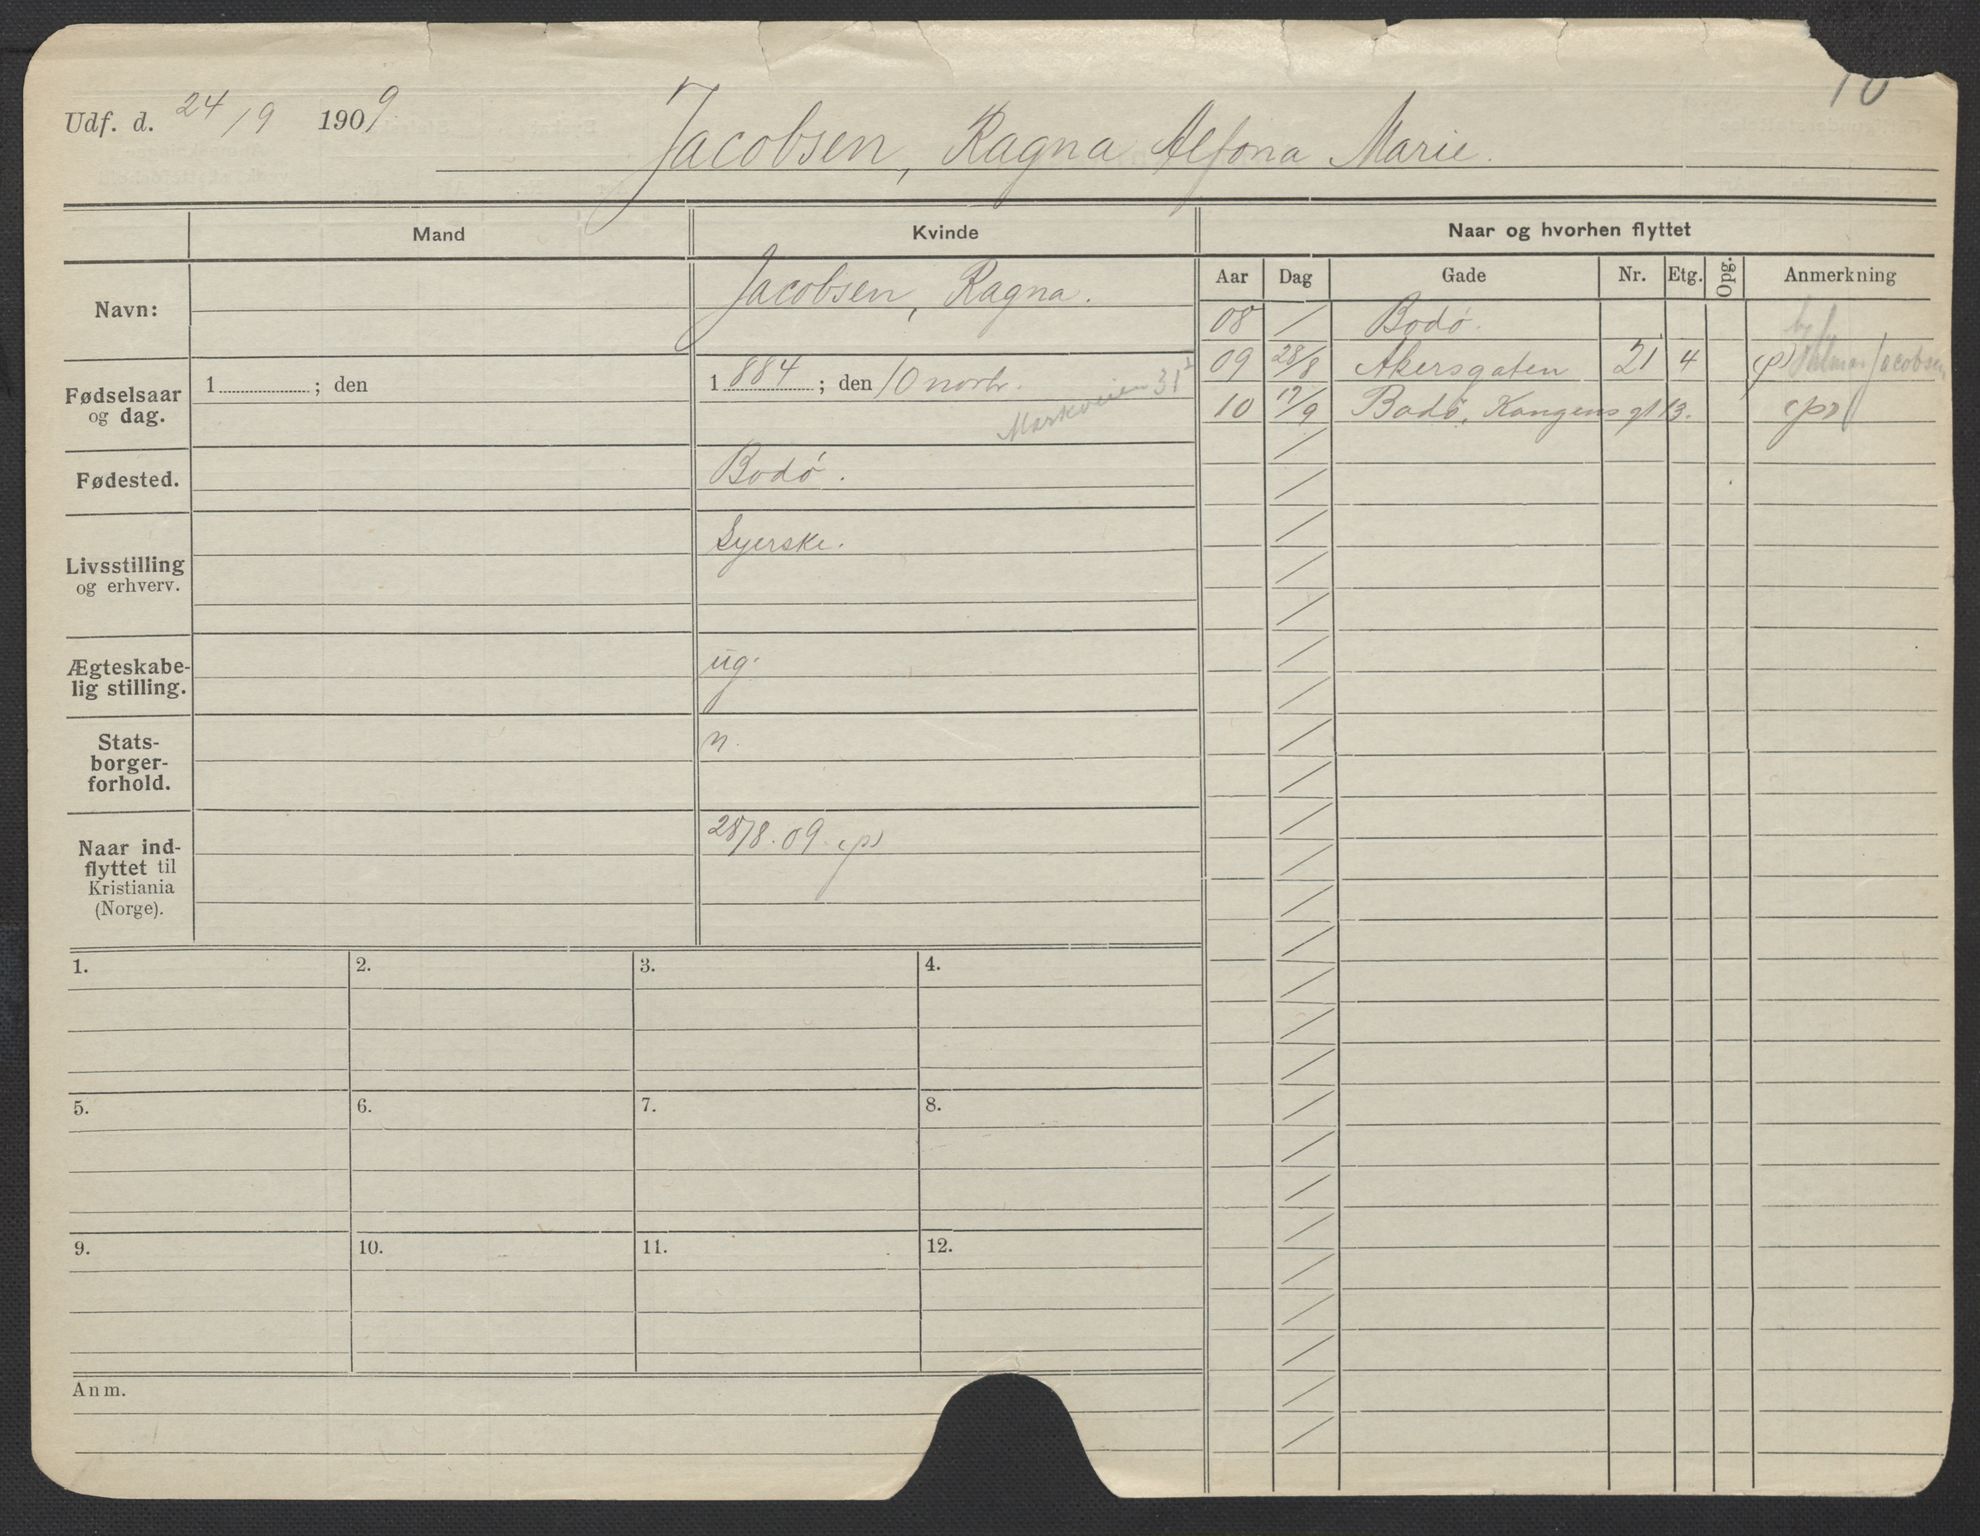 Udf. d. 24/9 1909.
10
Jacobsen, Ragna Alfona Marie.
Mand
Kvinde
Naar og hvorhen flyttet
Aar Dag Gade Nr. Etg. Opg. Anmerkning
Navn:
Jacobsen, Ragna.
08 / Bodø.
09 28/8 Akersgaten 21 4 (p) Hilmar Jacobsen
10 17/9 Bodø, Kongens gt 13. (p)
Fødselsaar
og dag.
1 ; den
1 884 ; den 10 novbr.
Markveien 31
Fødested.
Bodø.
Livsstilling
og erhverv.
Syerske.
Ægteskabe-
lig stilling.
ug.
Stats-
borger-
forhold.
n.
Naar ind-
flyttet til
Kristiania
(Norge).
28/8. 09. (p)
1. 2. 3. 4.
5. 6. 7. 8.
9. 10. 11. 12.
Anm.